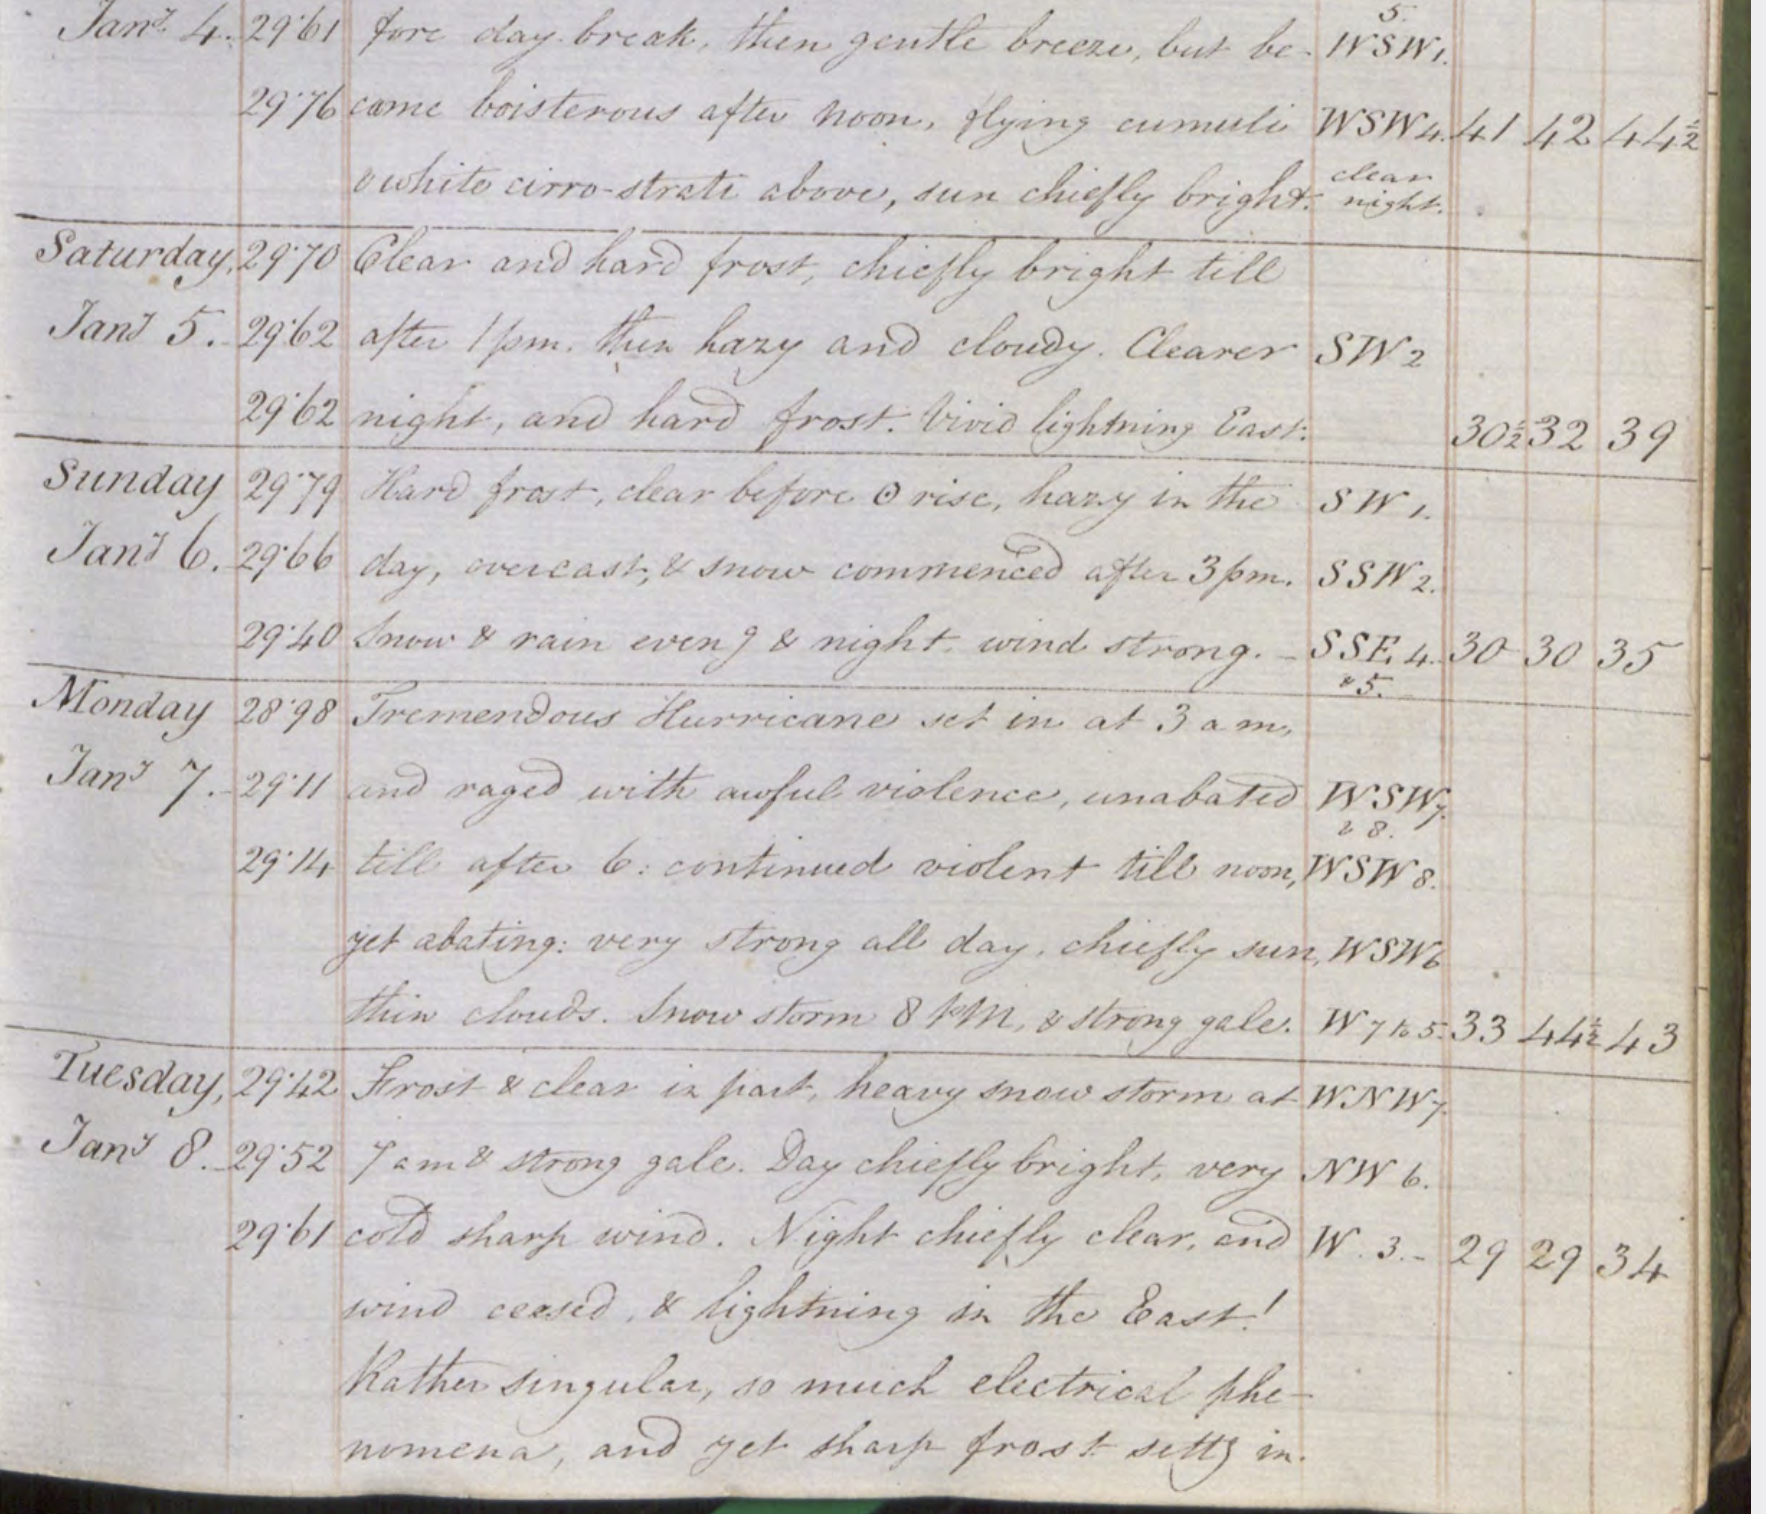 Jany 4. 29.61 fore day break, then gentle breeze, but be- 5. WSW 1.
29.76 came boisterous after noon, flying cumuli WSW 4. 41 42 44½
& white cirro-strati above, sun chiefly bright. clear night.
Saturday, 29.70 Clear and hard frost, chiefly bright till
Jany 5. 29.62 after 1 pm. then hazy and cloudy. Clearer SW 2
29.62 night, and hard frost. Vivid lightning East. 30½ 32 39
Sunday 29.79 Hard frost, clear before ⊙ rise, hazy in the SW 1.
Jany 6. 29.66 day, overcast, & snow commenced after 3 pm. SSW 2.
29.40 Snow & rain eveng & night. wind strong. - SSE. 4. 30 30 35
& 5.
Monday 28.98 Tremendous Hurricane set in at 3 am,
Jany 7. 29.11 and raged with awful violence, unabated WSW 7.
& 8.
29.14 till after 6: continued violent till noon, WSW 8.
yet abating: very strong all day, chiefly sun, WSW 6
thin clouds. Snow storm 8 PM, & strong gale. W 7 to 5. 33 44½ 43
Tuesday, 29.42 Frost & clear in part, heavy snow storm at WNW 7.
Jany 8. 29.52 7 am & strong gale. Day chiefly bright, very NW 6.
29.61 cold sharp wind. Night chiefly clear, and W. 3. - 29 29 34
wind ceased, & lightning in the East!
Rather singular, so much electrical phe-
nomena, and yet sharp frost settg in.